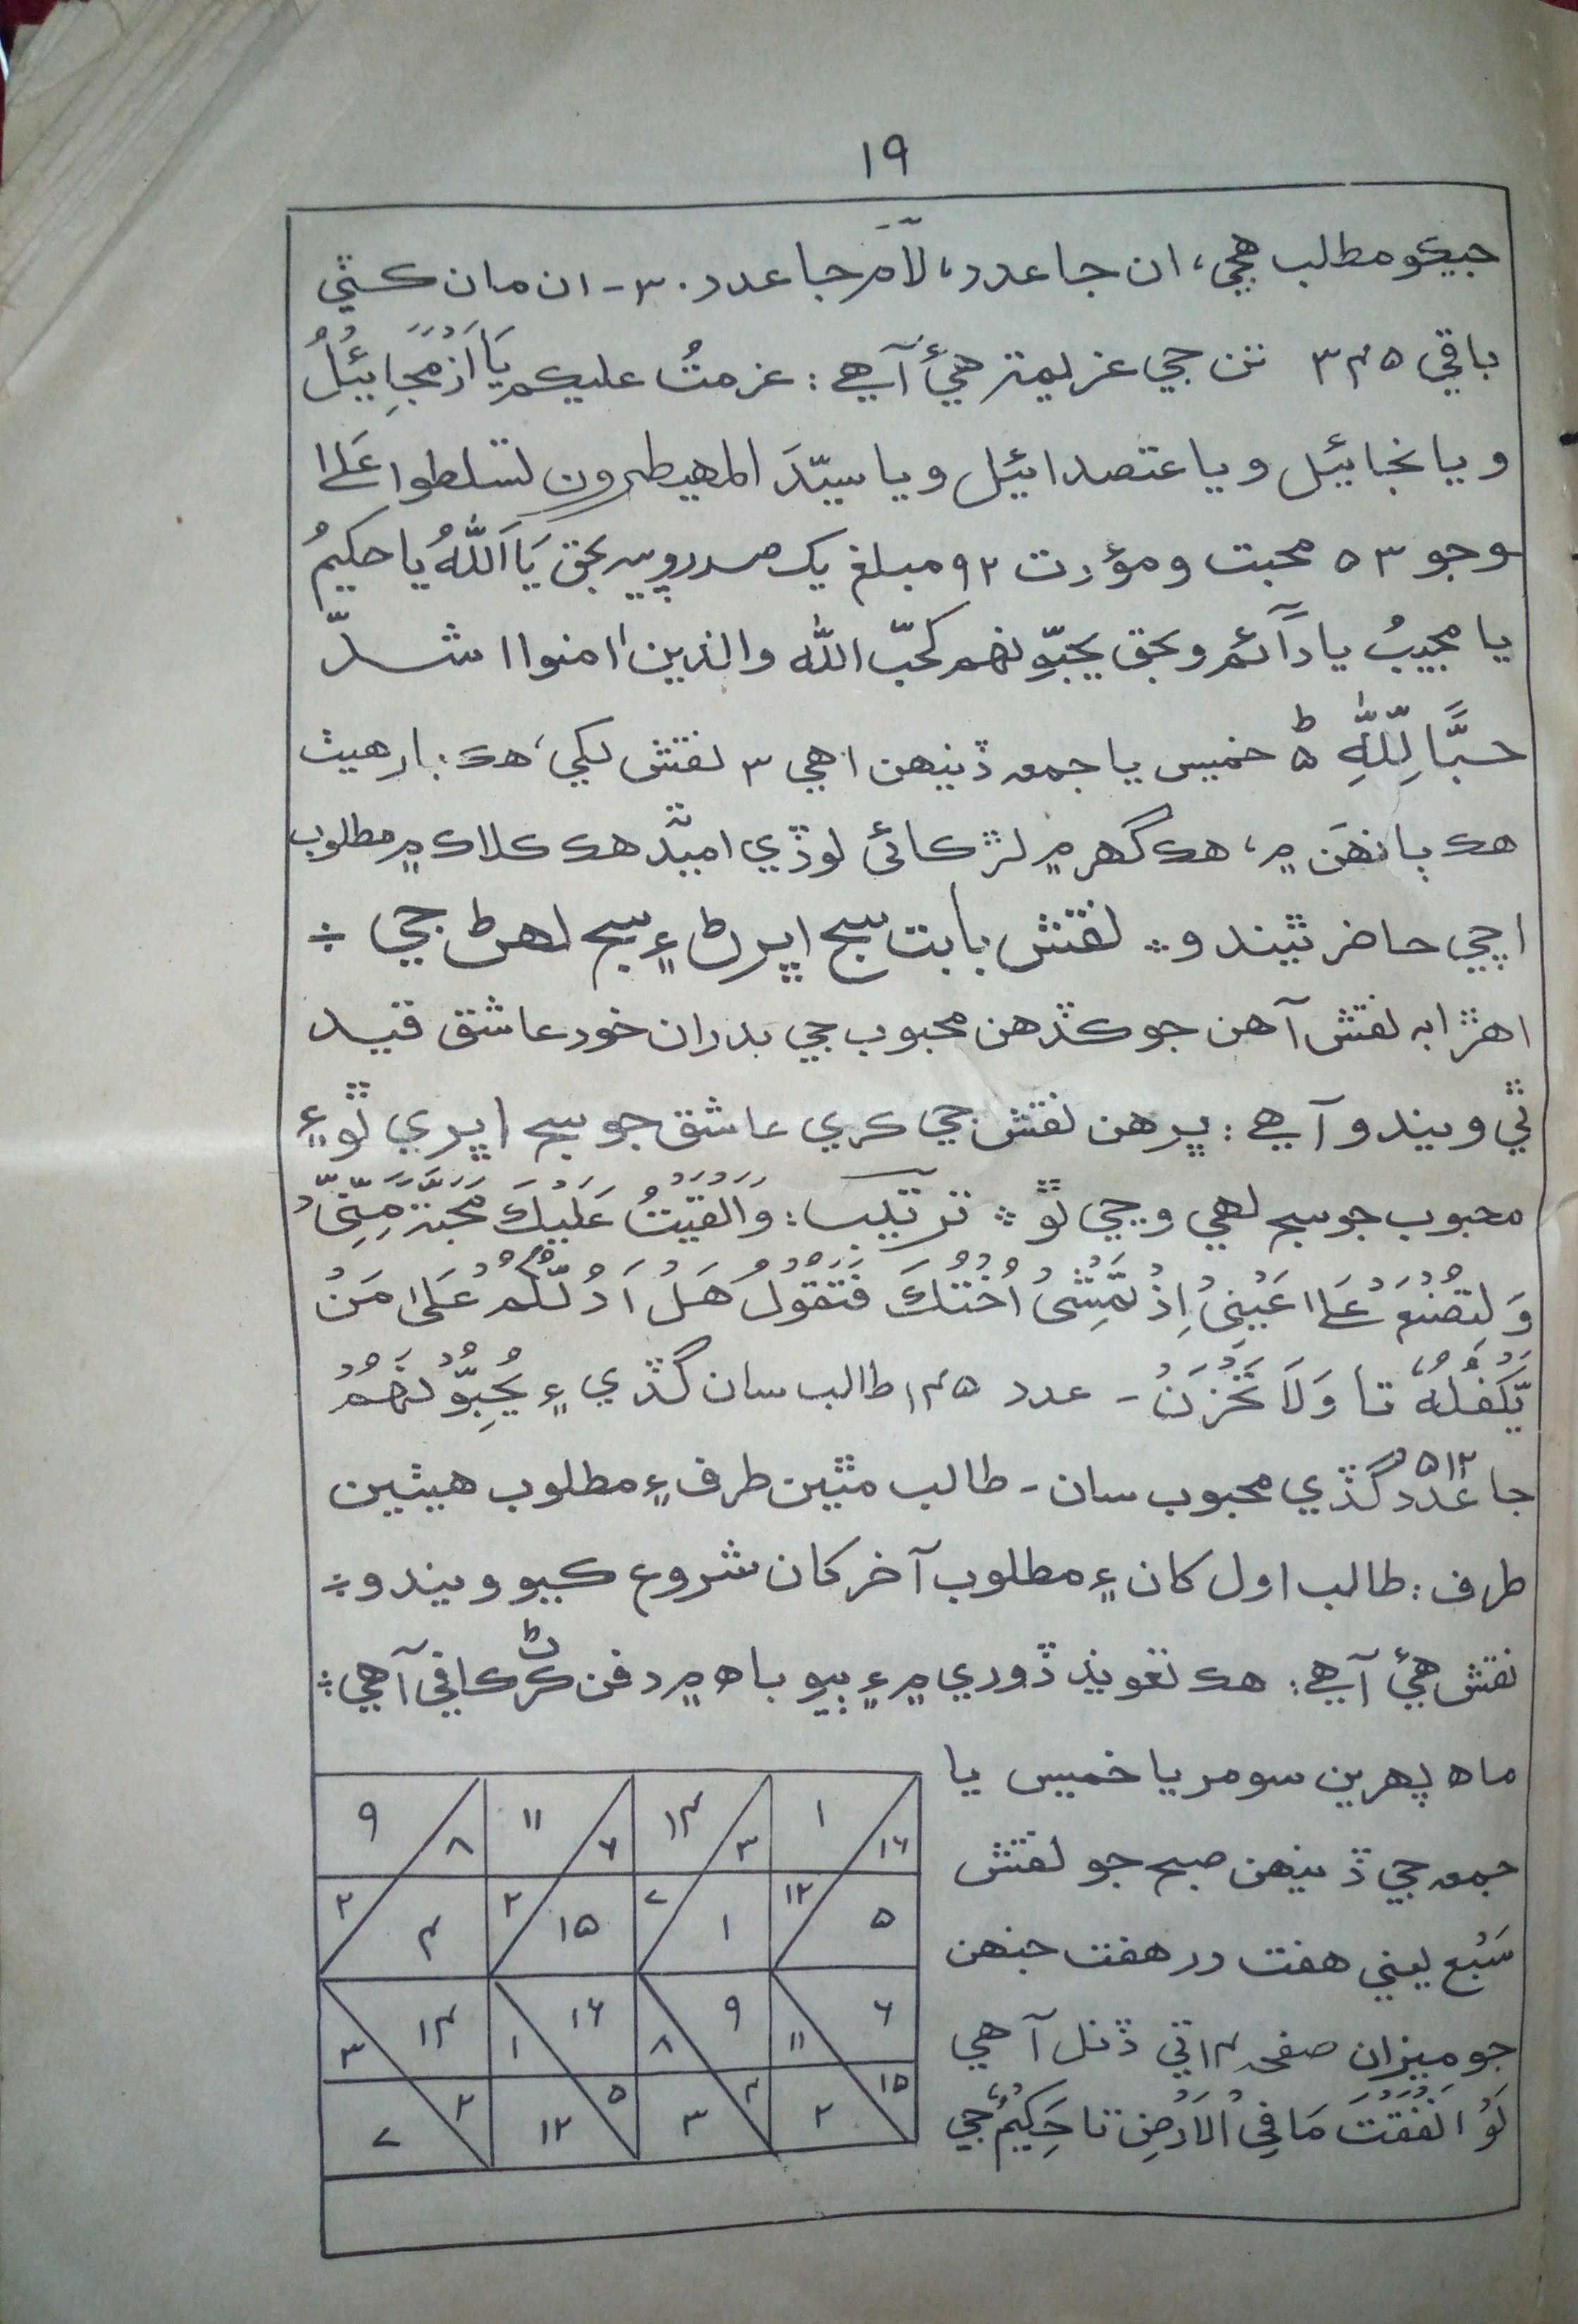 ١٩
جيڪو مطلب هجي، ان جا عدد، لآمَ جا عدد ٣٠ـ ان مان ڪٽي
باقي ٣۴۵ تن جي عزيمتہ هئ آهي : عزمتُ عليڪم
ويا نجبائيل ويا عتصدائيل ويا سيّدَ المهيطرون لتسلطوا عَلےٰا
وجو ۵٣ محبت ومؤدت ٩٢ مبلغ يڪ صد روپيہ بحق يَا اَللّٰهُ يا حڪيمُ
يا مجيبُ يا دَآئم وبحق يحبّونهم ڪحبّ اللّٰه والذين اٰمنوا اشدّ
حبًّا لِّلّٰهِ ط ۵ خميس يا جمعہ ڏينهن اهي ٣ نقش لکي، هڪ ٻار هيٺ
هڪ ٻانهَن ۾، هڪ گهر ۾ لڙڪائي لوڏي اميّد هڪ ڪلاڪ ۾ مطلوب
اچي حاضر ٿيندو ÷ نقش بابت سج اڀرڻ ۽ سج لهڻ جي ÷
اهڙا ٻہ نقش آهن جو ڪڏهن محبوب جي بدران خود عاشق قيد
ٿي ويندو آهي : پر هن نقش جي ڪري عاشق جو سج اڀري ٿو ۽
محبوب جو سج لهي وڃي ٿو ÷ ترتيب : وَاَلْقَيْتُ عَلَيْكَ مَحَبَّةً مِّنِّىْ
وَ لِتُصْنَعَ عَلےٰا عَيْنِىْ اِذْ تَمْشِىْ اُخْتُكَ فَتَقُوْلُ هَلْ اَدُلُّكُمْ عَلےٰا مَنْ
يَّكْفُلُهٗ تا وَلَا تَحْزَنْ ـ عدد ١۴۵ طالب سان گڏي ۽ يُحِبُّوْنَهُمْ
جا عدد ۵١٢ گڏي محبوب سان ـ طالب مٿين طرف ۽ مطلوب هيٺين
طرف : طالب اول کان ۽ مطلوب آخر کان شروع ڪيو ويندو ÷
نقش هئ آهي : هڪ تعويذ ڏوري ۾ ۽ ٻيو باهہ ۾ دفن ڪرڻ ڪافي آهي ÷
ماهہ پهرين سومر يا خميس يا
جمعہ جي ڏينهن صبح جو نقش
سَبْع يعني هفت در هفت جنهن
جو ميزان صفحہ ١۴ تي ڏنل آهي
لَوْ اَنْفَقْتَ مَا فِى الْاَرْضِ تا حَكِيْمٌ جي
١ ١۶ ١۴ ٣ ١١ ۶ ٩ ٨
١٢ ۵ ٧ ١ ٢ ١۵ ٢ ۴
۶ ١١ ٩ ٨ ١۶ ١ ١۴ ٣
١۵ ٢ ۴ ٣ ۵ ١٢ ٢ ٧